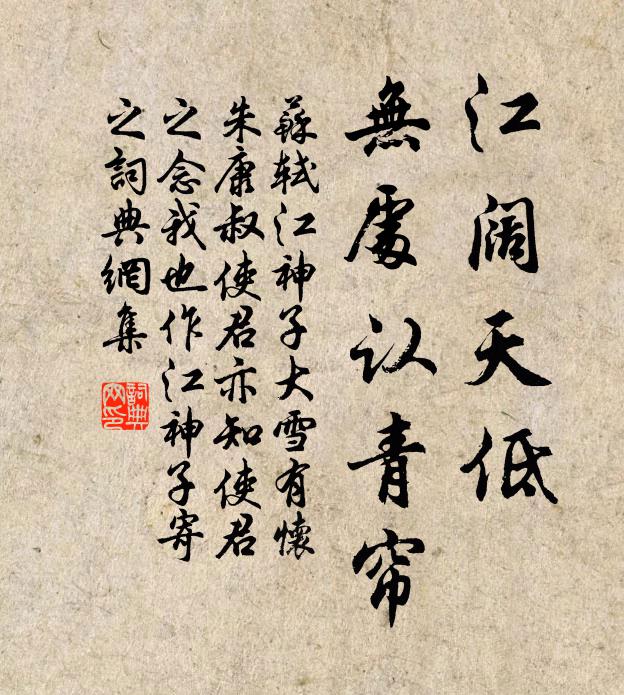 江阔天低
無處认青帘
蘇軾江神子大雪有懷
朱康叔使君亦知使君
之念我也作江神子寄
之詞典網集
詞典網印